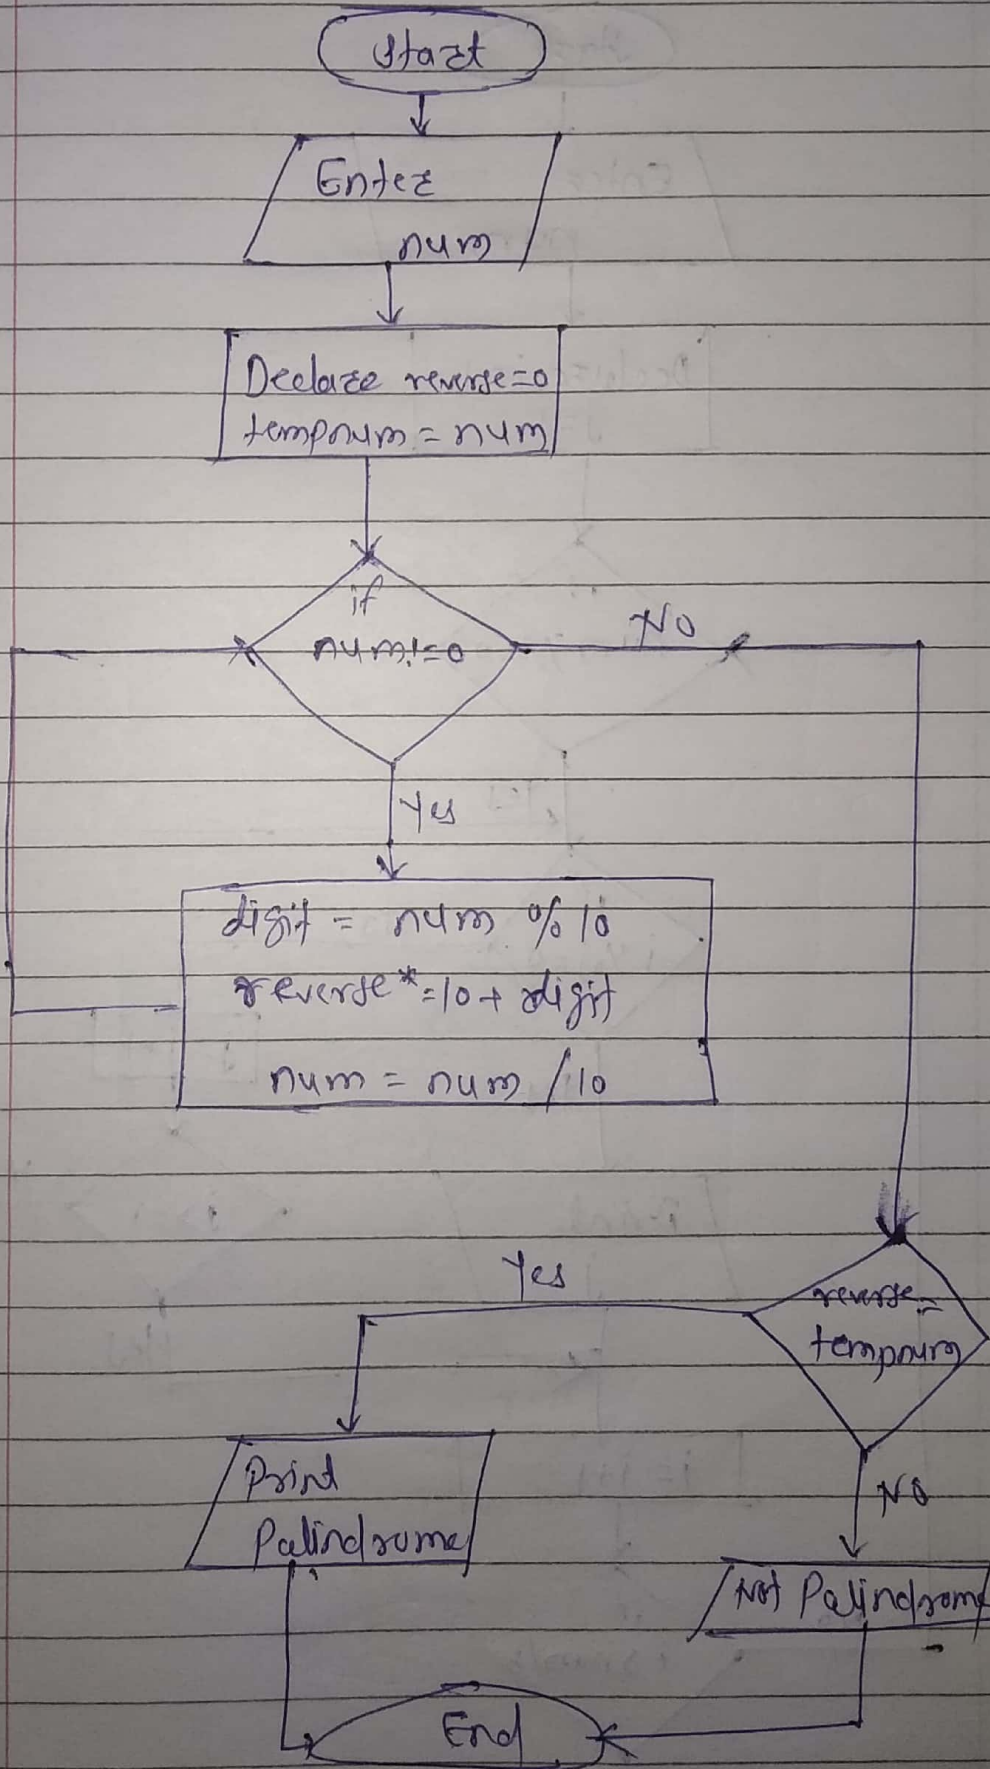 Start
Enter
num
Declare reverse=0
tempnum = num
if
num!=0
No
Yes
digit = num % 10
reverse*=10+digit
num = num /10
Yes
reverse=
tempnum
Print
Palindrome
No
Not Palindrome
End